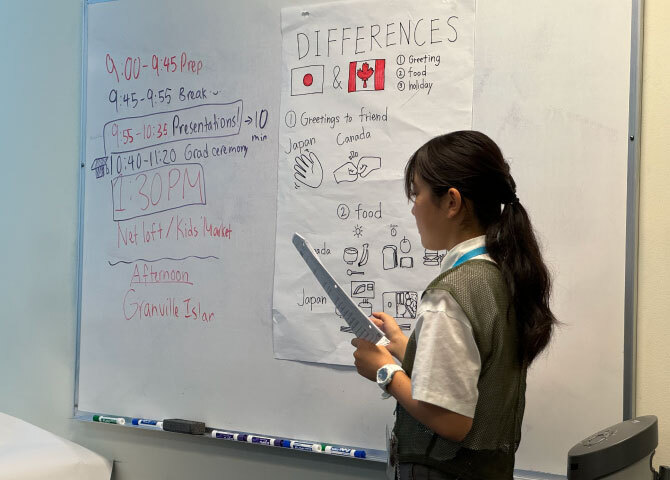 9:00-9:45 Prep
9:45-9:55 Break
9:55-10:35 Presentations → 10 min
10:40-11:20 Grad ceremony
1:30PM
Net loft / Kids' Market
Afternoon
Granville Islan
DIFFERENCES
&
① Greeting
② food
③ holiday
① Greetings to friend
Japan Canada
② food
nada
Japan